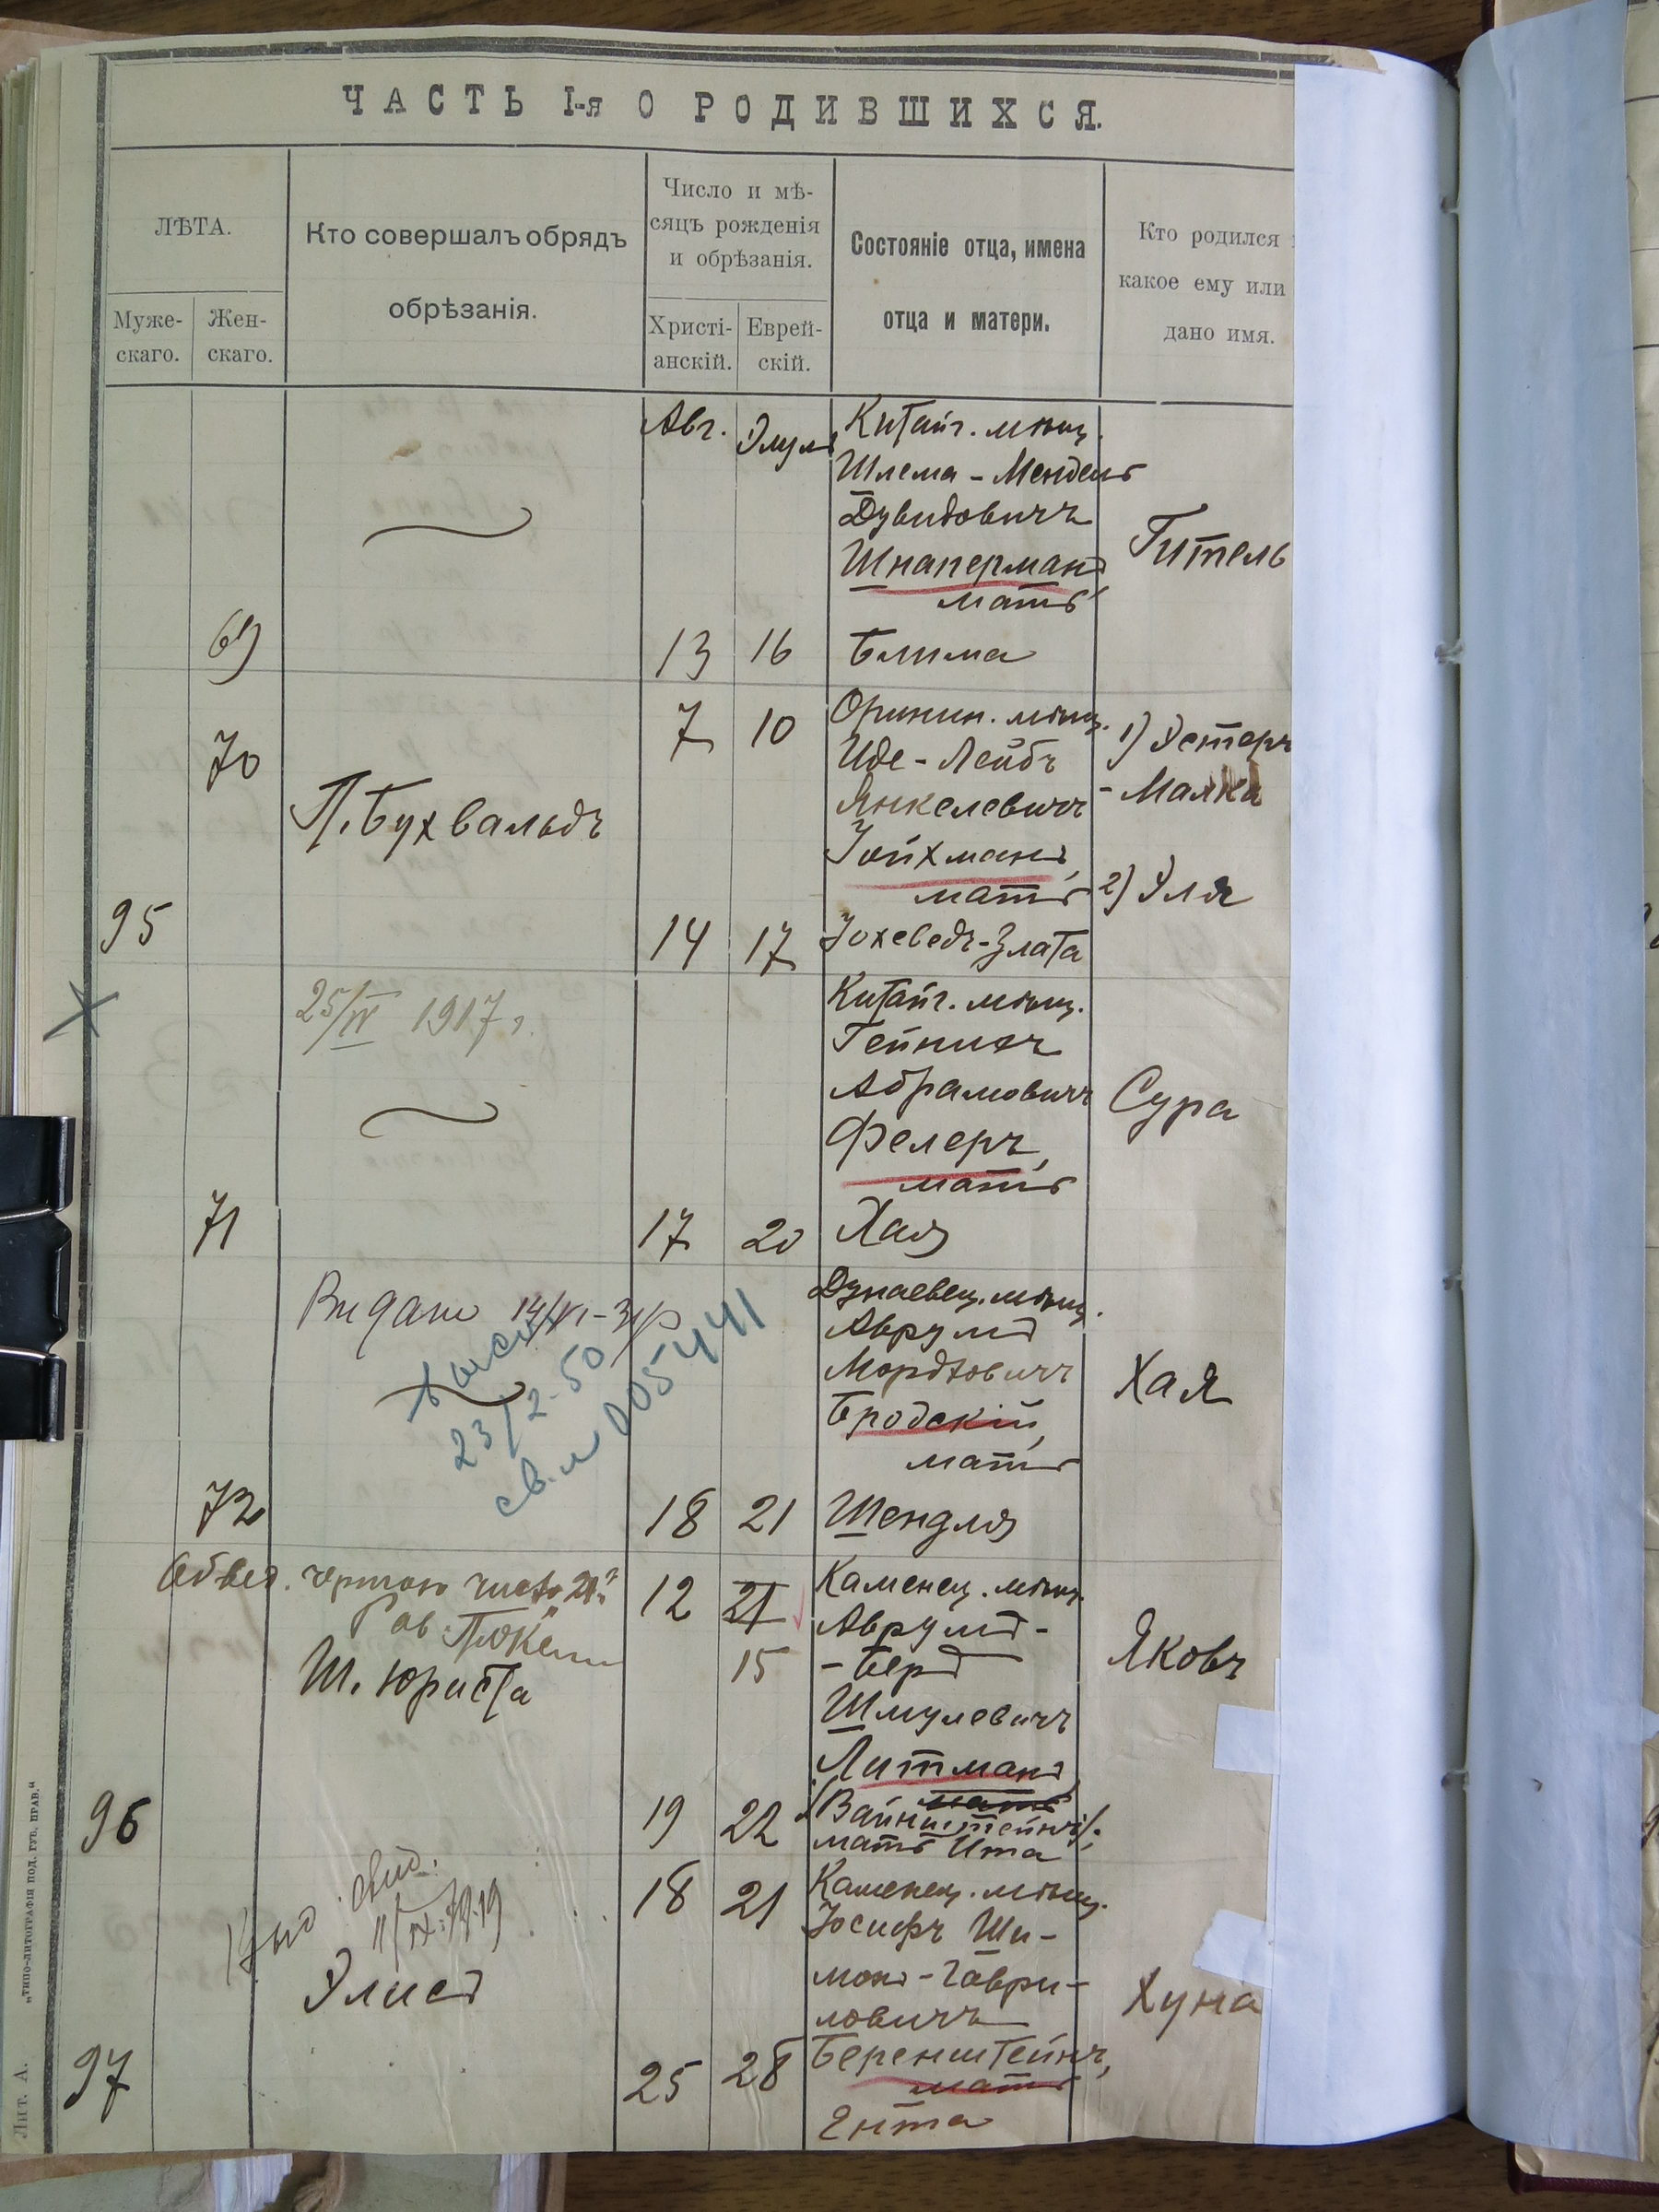 ЧАСТЬ I-я О РОДИВШИХСЯ.
ЛѢТА.
Муже-
скаго.
Жен-
скаго.
Кто совершалъ обрядъ
обрѣзанія.
Число и мѣ-
сяцъ рожденія
и обрѣзанія.
Христі-
анскій.
Еврей-
скій.
Состояніе отца, имена
отца и матери.
Кто родился
какое ему или
дано имя.
Авг. Элулъ
Китайг. мѣщ.
Шлема - Мендель
Дувидовичъ
Шнаперманъ,
мать
69 13 16 Блима
Гитель
70 7 10
Оринин. мѣщ.
Иде - Лейбъ
Янкелевичъ
Іойхманъ,
мать
Іохеведъ-Злата
П. Бухвальдъ
1) Эстеръ
- Малка
2) Эля
95 14 17
25/IV 1917 г.
Китайг. мѣщ.
Гейнихъ
Абрамовичъ
Фелеръ,
мать
71 17 20 Хая
Сура
Видано
23/2-50
св. № 005441
Дунаевец. мѣщ.
Аврумъ
Мордковичъ
Бродскій,
мать
72 18 21 Шендля
Хая
чертою число 21
Рав.
Ш. Юриста
12 21
15
Каменец. мѣщ.
Аврумъ -
- Беръ
Шмулевичъ
Литманъ,
мать
(Вайнштейнъ);
мать Ита
Яковъ
96 19 22
Выд. свид.
Элисъ
18 21
Каменец. мѣщ.
Іосифъ Ши-
монъ - Гаври-
ловичъ
Беренштейнъ,
мать
Ента
Хуна
97 25 28
Лит. А. „Типо-литографія под. губ. прав.“